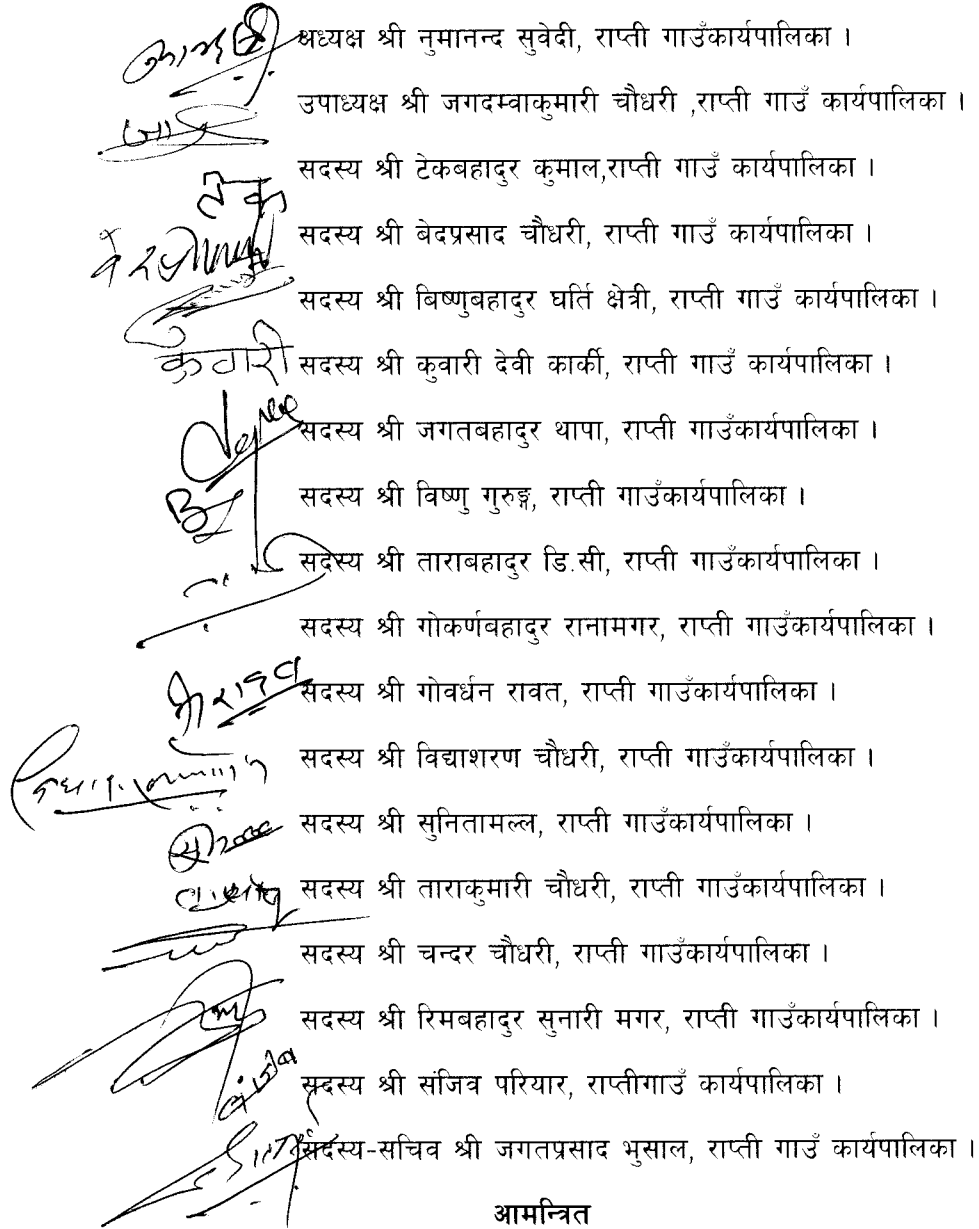 अध्यक्ष श्री नुमानन्द सुवेदी, राप्ती गाउँकार्यपालिका ।
उपाध्यक्ष श्री जगदम्वाकुमारी चौधरी ,राप्ती गाउँ कार्यपालिका ।
सदस्य श्री टेकबहादुर कुमाल,राप्ती गाउँ कार्यपालिका ।
टेक
सदस्य श्री बेदप्रसाद चौधरी, राप्ती गाउँ कार्यपालिका ।
सदस्य श्री बिष्णुबहादुर घर्ति क्षेत्री, राप्ती गाउँ कार्यपालिका ।
कुवारी सदस्य श्री कुवारी देवी कार्की, राप्ती गाउँ कार्यपालिका ।
सदस्य श्री जगतबहादुर थापा, राप्ती गाउँकार्यपालिका ।
सदस्य श्री विष्णु गुरुङ्ग, राप्ती गाउँकार्यपालिका ।
सदस्य श्री ताराबहादुर डि.सी, राप्ती गाउँकार्यपालिका ।
सदस्य श्री गोकर्णबहादुर रानामगर, राप्ती गाउँकार्यपालिका ।
सदस्य श्री गोवर्धन रावत, राप्ती गाउँकार्यपालिका ।
सदस्य श्री विद्याशरण चौधरी, राप्ती गाउँकार्यपालिका ।
सदस्य श्री सुनितामल्ल, राप्ती गाउँकार्यपालिका ।
सदस्य श्री ताराकुमारी चौधरी, राप्ती गाउँकार्यपालिका ।
सदस्य श्री चन्दर चौधरी, राप्ती गाउँकार्यपालिका ।
सदस्य श्री रिमबहादुर सुनारी मगर, राप्ती गाउँकार्यपालिका ।
सदस्य श्री संजिव परियार, राप्तीगाउँ कार्यपालिका ।
सदस्य-सचिव श्री जगतप्रसाद भुसाल, राप्ती गाउँ कार्यपालिका ।
आमन्त्रित